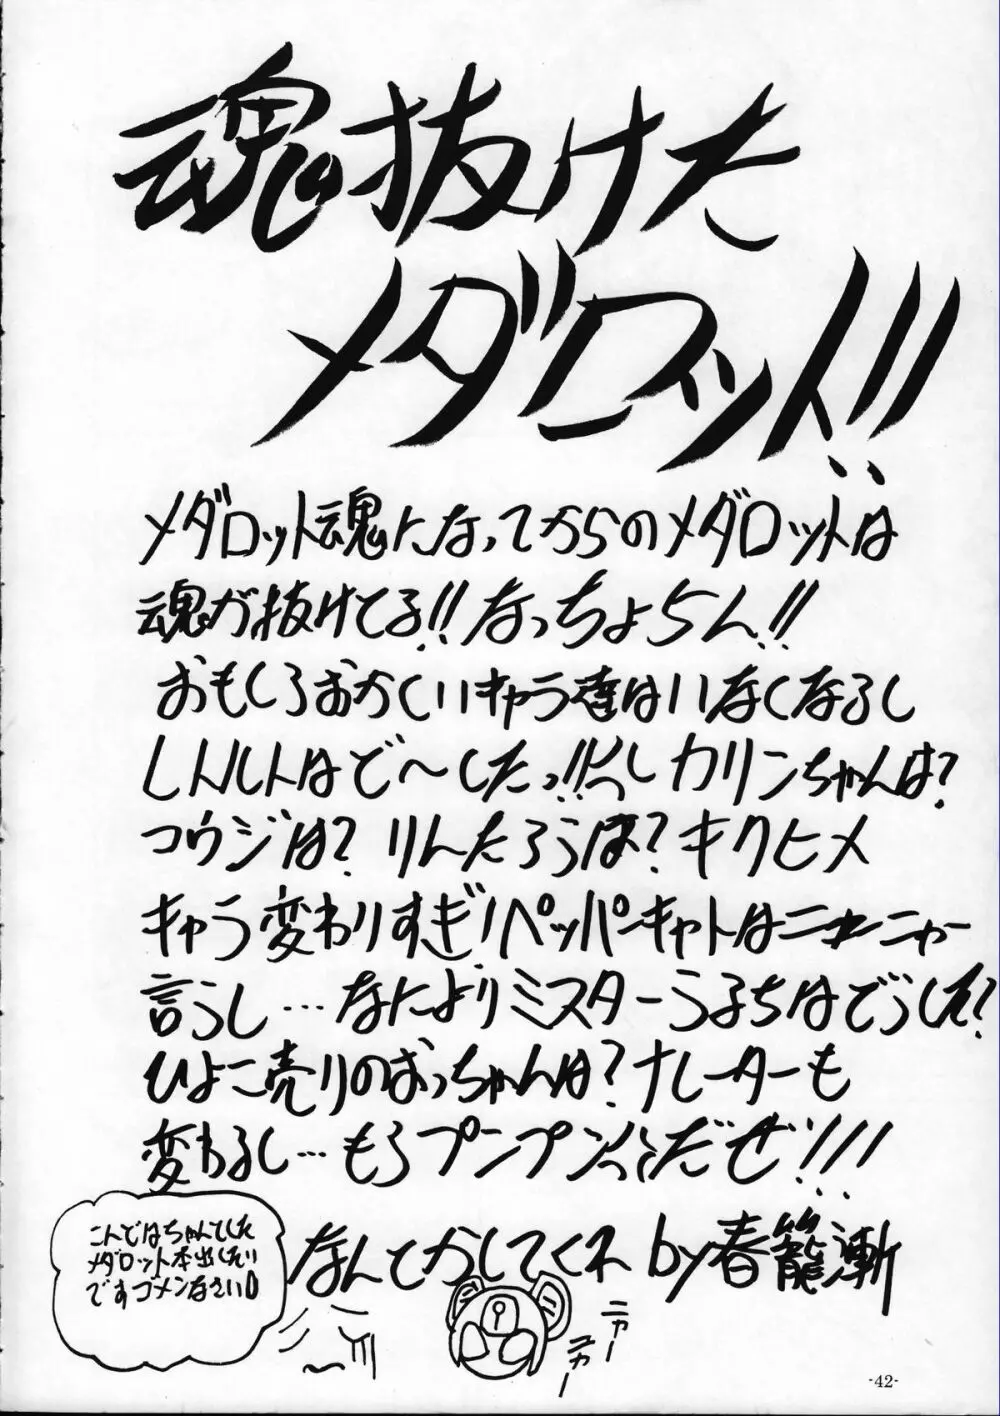 魂抜けた
メダロット!!
メダロット魂になってからのメダロットは
魂が抜けてる!!なっちょらん!!
おもしろおかしいキャラ達はいなくなるし
シンルルトはど〜した!! カリンちゃんは?
コウジは? りんたろうは? キクヒメ
キャラ変わりすぎ!ペッパーキャットはニャーニャー
言うし…なによりミスターうるちはどうした?
ひよこ売りのおっちゃんは?ナレーターも
変わるし…もうプンプンだぜ!!!
なんとかしてくれ by春籠漸
こんどはちゃんとした
メダロット本出したい
ですゴメンなさい
ニャー
ニャー
-42-